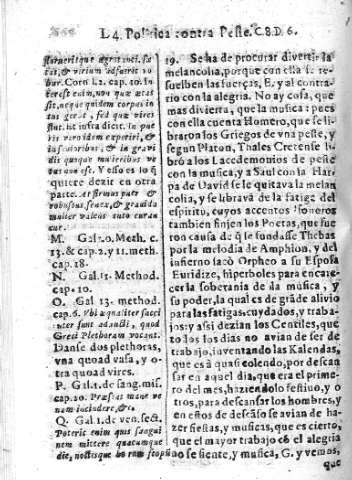 L 4. Politica contra Peste. C. 8. D. 6.
cap. 10. In
terest enim, non quæ ætas
sit, neque quidem corpus in
tus gerat, sed quæ vires
yes. Y esso es lo q̃
quiere dezir en otra
parte.
robustus senex, & gravida
mulier valens
M. Gal. 10. Meth. c.
13. & cap. 2. y 11. meth.
cap. 18.
N. Gal. 11. Method.
cap. 10.
O. Gal. 13. method.
cap. 6.
Græci Plethoram vocant.
Danse dos plethoras,
vna quoad vasa, y o-
tra quoad vires.
P. Gal. 1. de sang. mis.
cap. 10.
nam incidere, &c.
Q. Gal. 1. de ven. sect.
Poterit enim quis sangui
nem mittere quacumque
die, noctisque
19. Se ha de procurar divertir la
melancolia, porque con ella se re-
suelben las fuerças, E. y al contra-
rio con la alegria. No ay cosa, que
mas divierta, que la musica: pues
con ella cuenta Homero, que se li-
braron los Griegos de vna peste, y
segun Platon, Thales Cretense li-
brò a los Lacedemonios de peste
con la musica, y a Saul con la Har-
pa de David se le quitava la melan
colia, y se librava de la fatiga del
espiritu, cuyos accentos sonoros
tambien finjen los Poetas, que fue
ron causa de q̃ se fundasse Thebas
por la melodia de Amphion, y del
infierno sacò Orpheo a su Esposa
Euridize, hiperboles para encare-
cer la soberania de la musica, y
su poder, la qual es de grãde alivio
para las fatigas, cuydados, y traba-
jos; y assi dezian los Gentiles, que
no todos los dias no avian de ser de
trabajo, inventando las Kalendas,
que es à quasi colendo, por descan-
sar en aquel dia, que era el prime-
ro del mes, haziendolo festivo, y o-
tros, para descansar los hombres, y
en estos de descãso se avian de ha-
zer fiestas, y musicas, que es cierto,
que el mayor trabajo cõ el alegria
no se siente, y musica, G. y vemos,
que